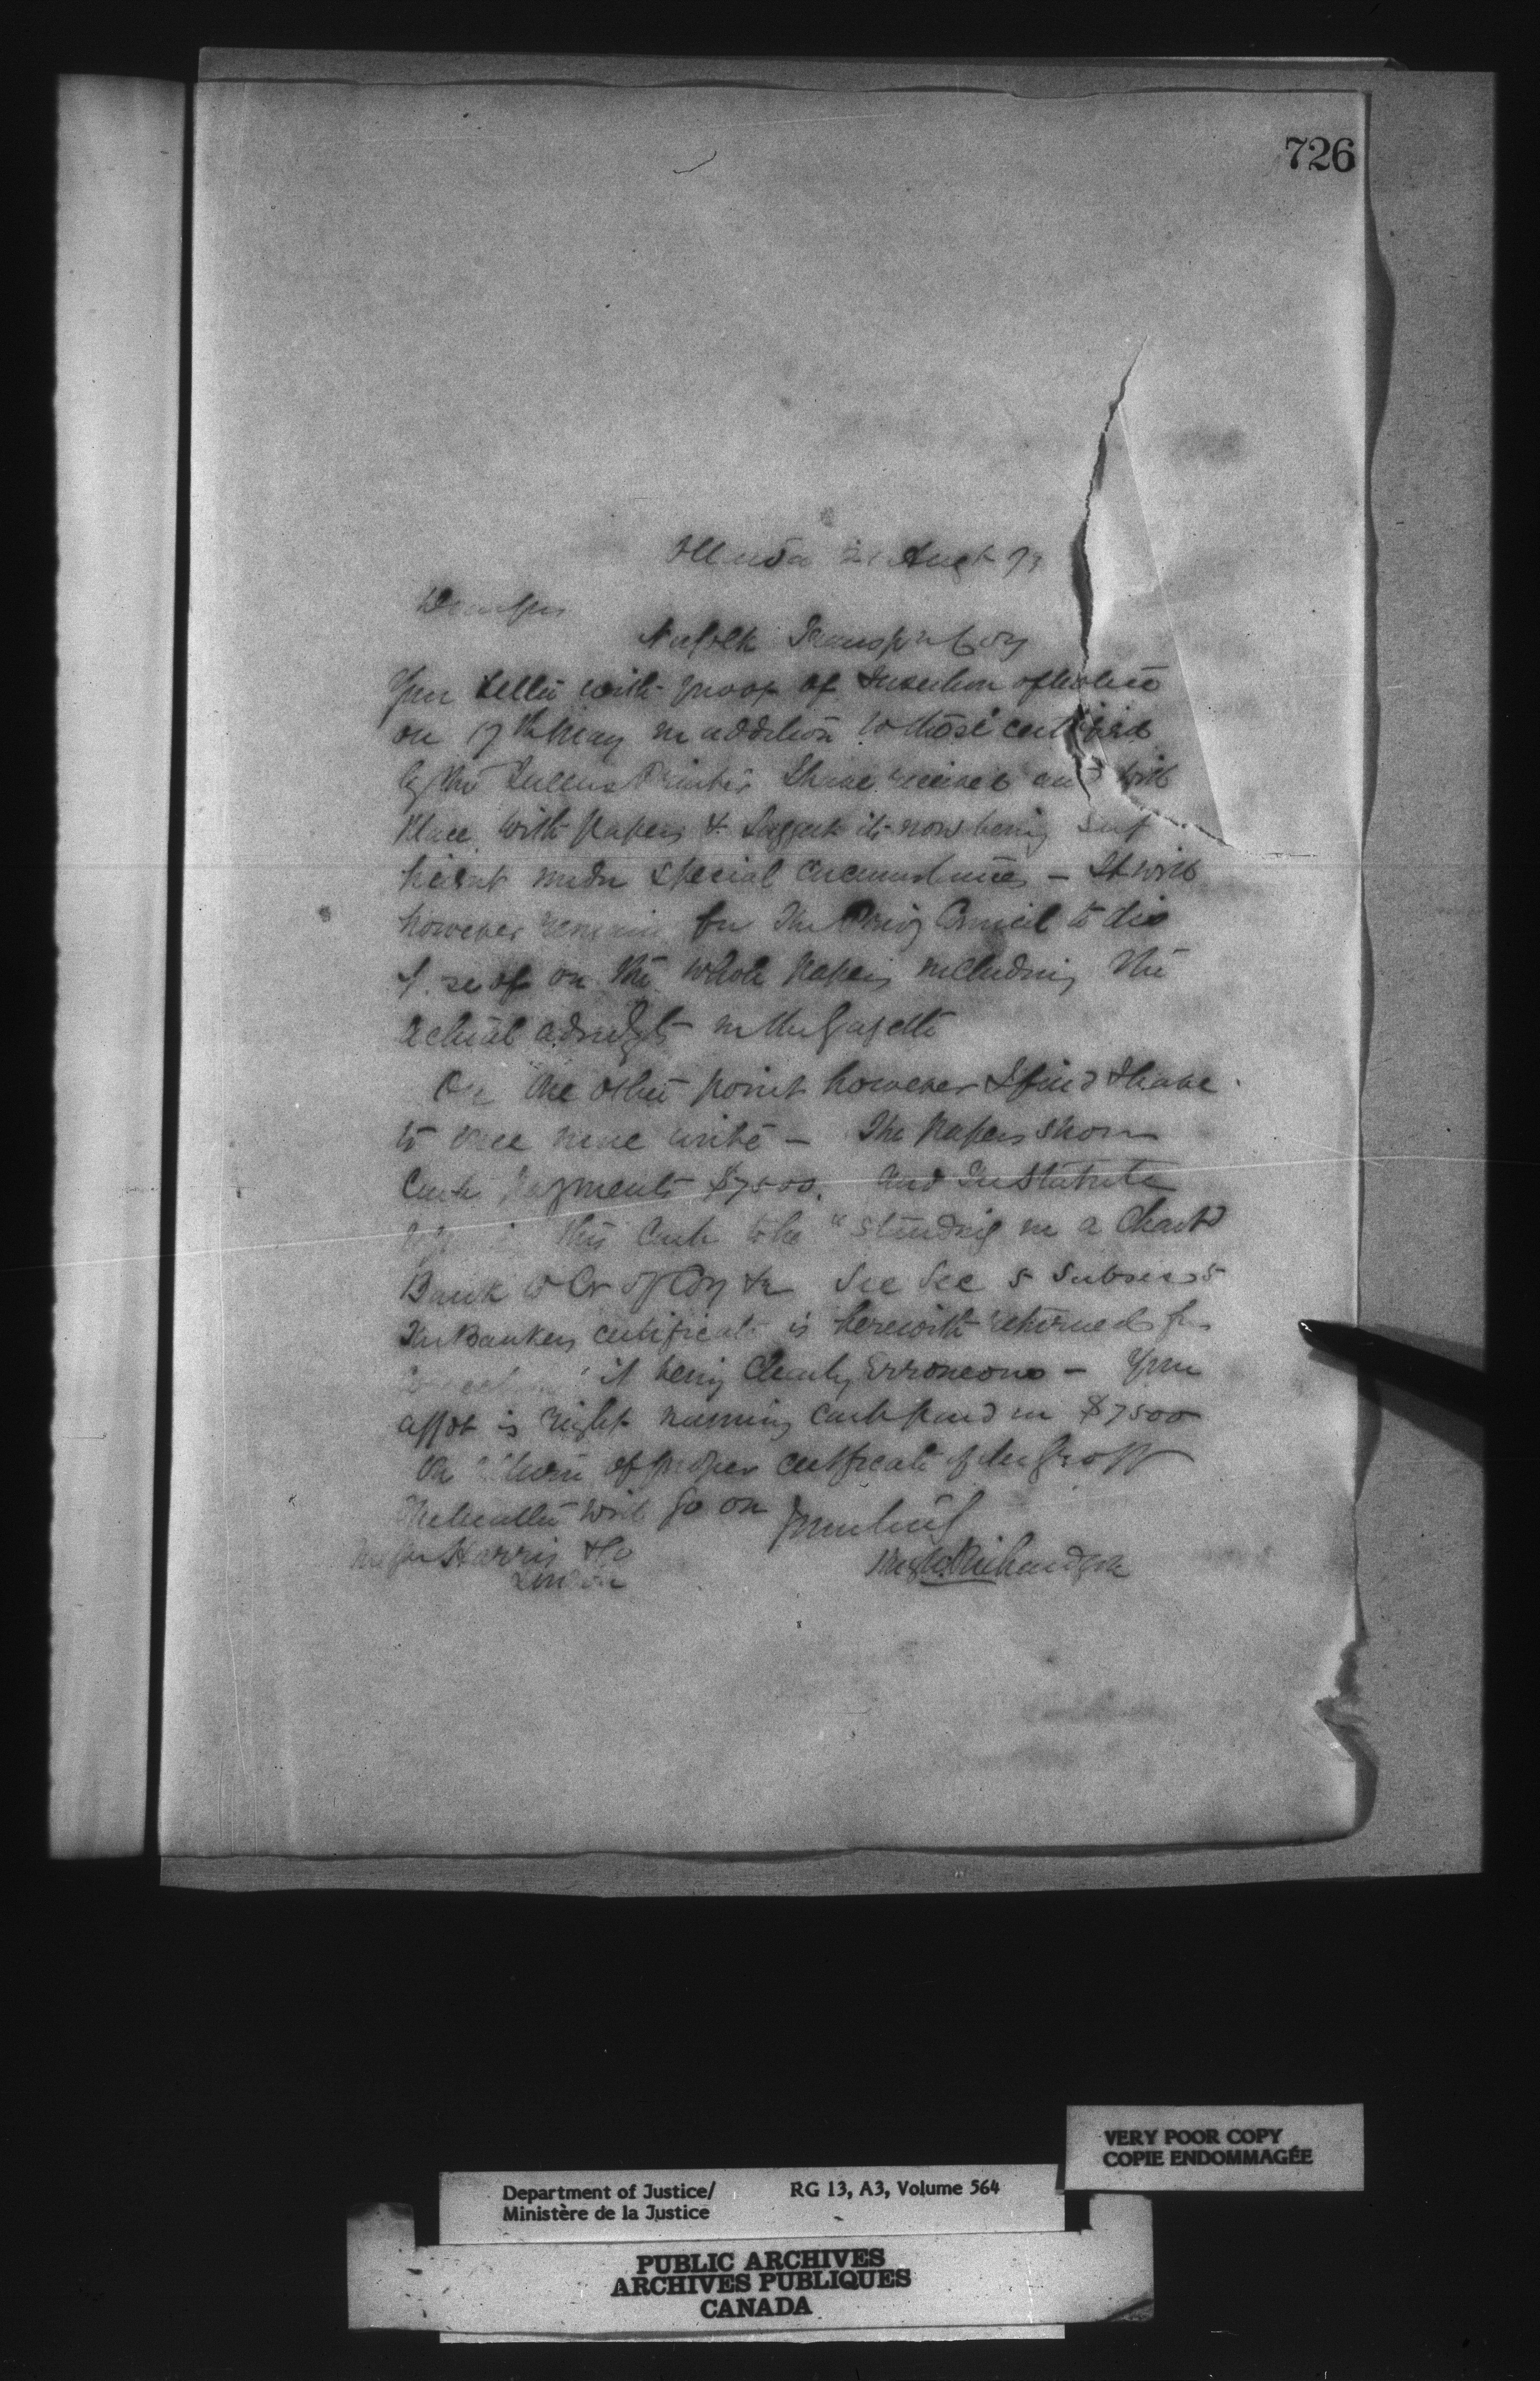 726
Ottawa 21 Augt 7
Dear Sirs
Norfolk Transp'n Coy
Your letter with proof of Insertion of Notice
on 17th May in addition to those certified
by the Queens Printer I have received and will
place with papers & suggest its now being suf
ficient under special circumstances – It will
however remain for the Privy Council to dis
pose of on the whole papers including the
actual advts in the Gazette
On the other point however I find I have
to once more write – The papers show
Cash payments $7500. And the Statute
this Cash to be "standing in a Chartd
Bank to Cr of Coy &c See Sec 5 Subsec 5
The Bankers certificate is herewith returned for
correction it being clearly erroneous – Your
affdt is right naming cash paid in $7500
On return of proper certificate
the matter will go on
Yours truly
Messrs Harris & Co
London
Hugh Richardson
VERY POOR COPY
COPIE ENDOMMAGÉE
Department of Justice/
Ministère de la Justice
RG 13, A3, Volume 564
PUBLIC ARCHIVES
ARCHIVES PUBLIQUES
CANADA